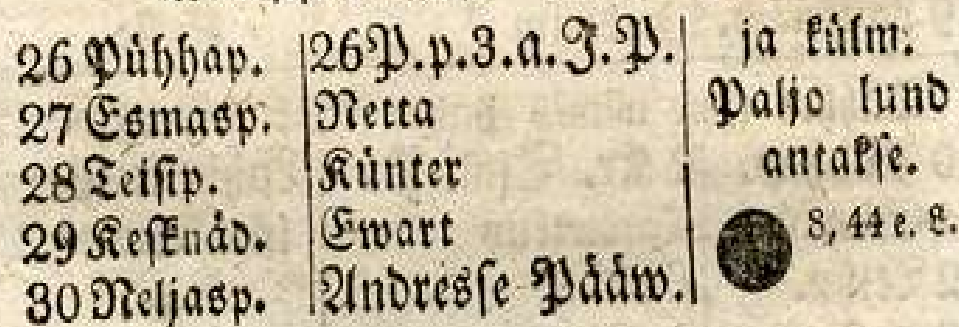 26 Pühhap. 26 P. p. 3. a. J. P. ja külm.
27 Esmasp. Netta Paljo lund
28 Teisip. Künter antakse.
29 Kesknäd. Ewart 8, 44 e. L.
30 Neljasp. Andresse Pääw.